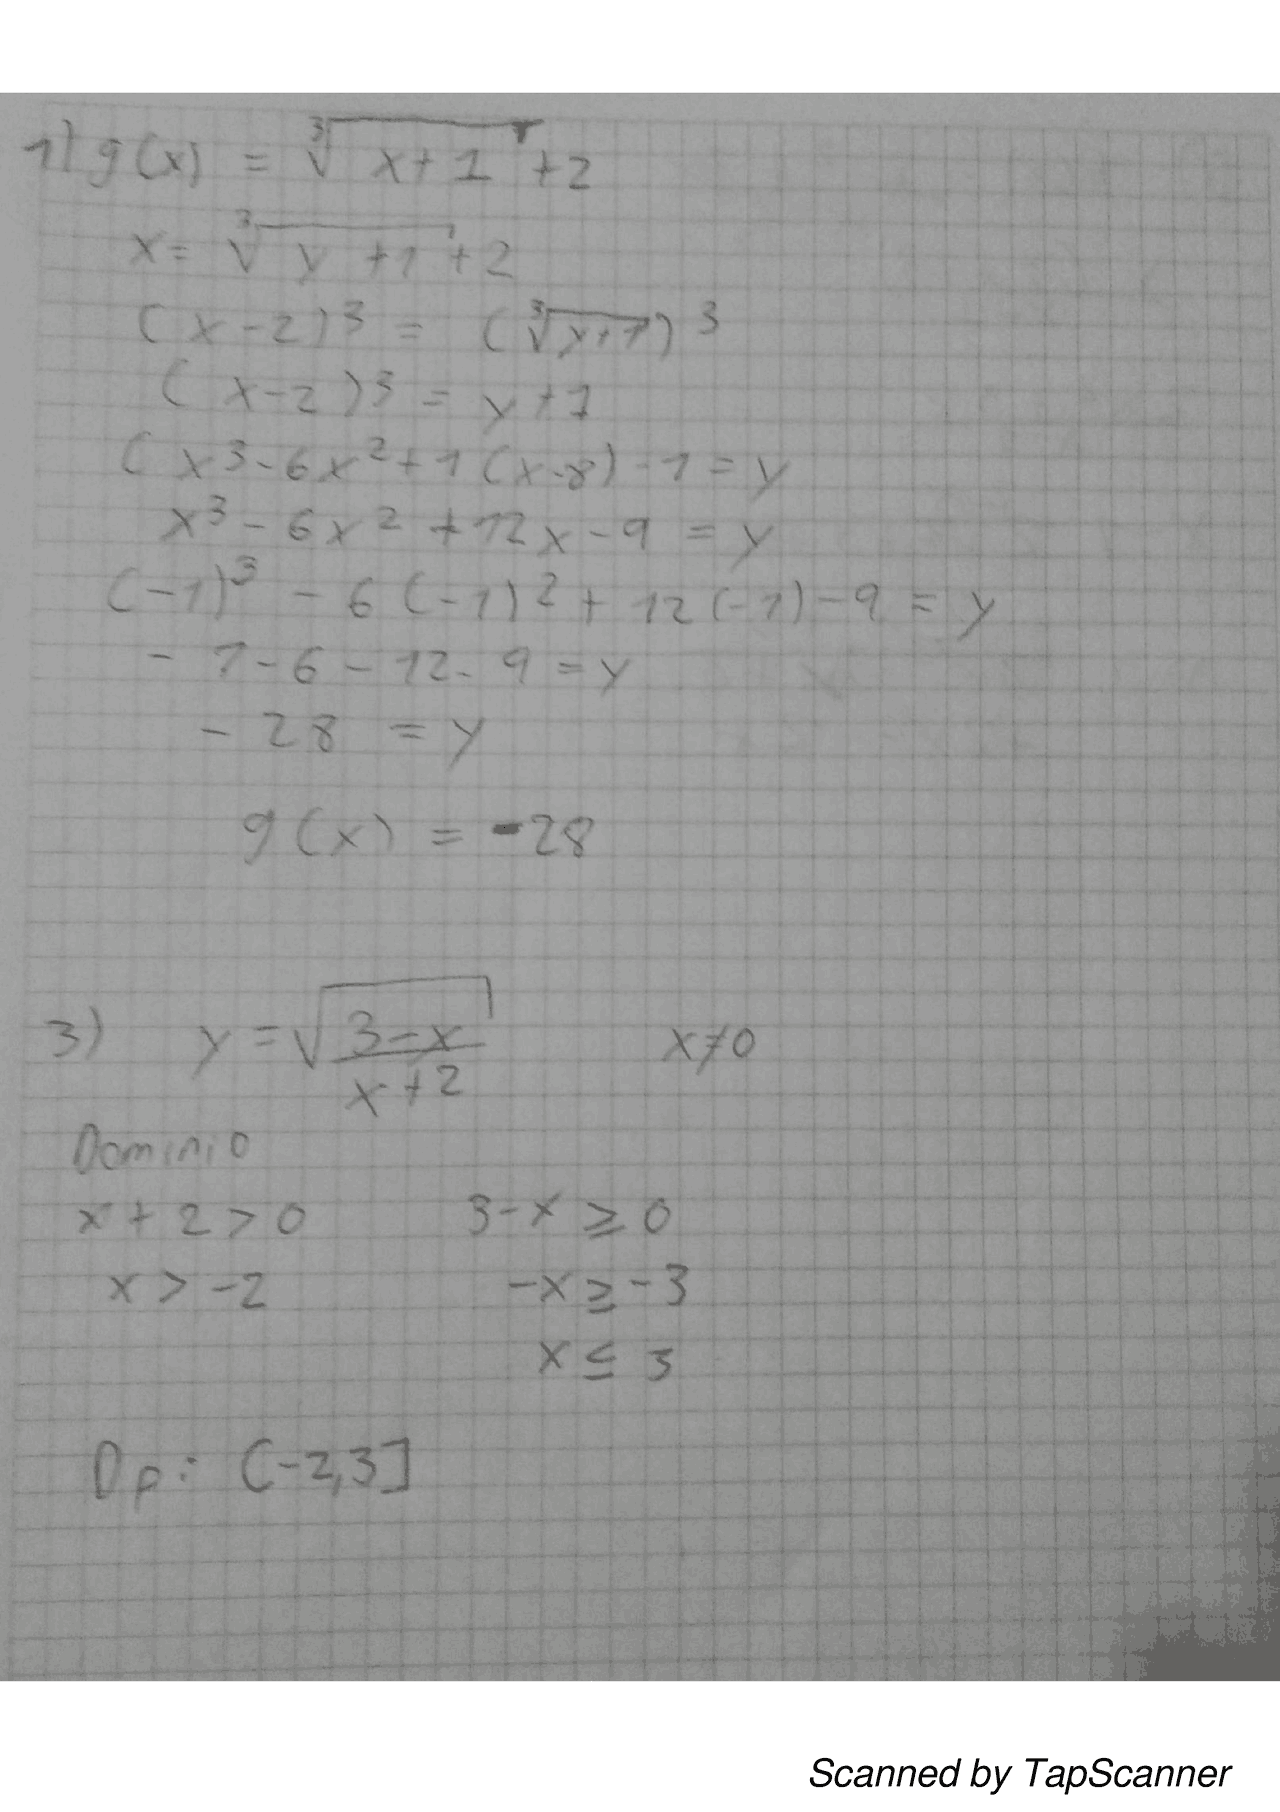 1) g(x) = ∛(x+1) +2
x = ∛(y+1) +2
(x-2)³ = (∛(y+1))³
(x-2)³ = y+1
(x³-6x²+1(x-8)-1=y
x³-6x²+12x-9=y
(-1)³-6(-1)²+12(-1)-9=y
-1-6-12-9=y
-28=y
g(x) = -28
3) y = √((3-x)/(x+2)) x≠0
Dominio
x+2>0 3-x≥0
x>-2 -x≥-3
x≤3
Dp: (-2,3]
Scanned by TapScanner